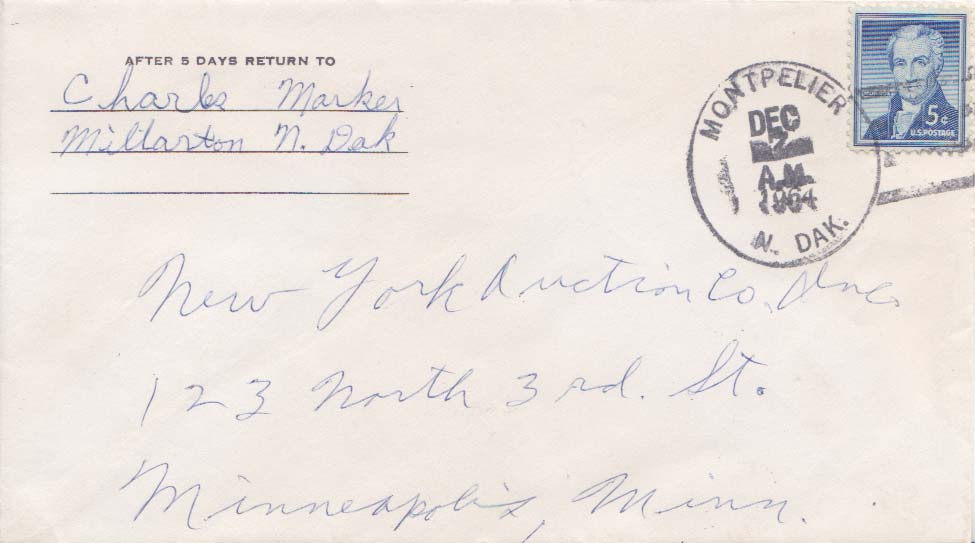 AFTER 5 DAYS RETURN TO
Charles Marker
Millarton N. Dak
MONTPELIER
DEC
A.M.
1964
N. DAK.
5¢
U.S. POSTAGE
New York Auction Co. Inc.
123 North 3rd. St.
Minneapolis, Minn.